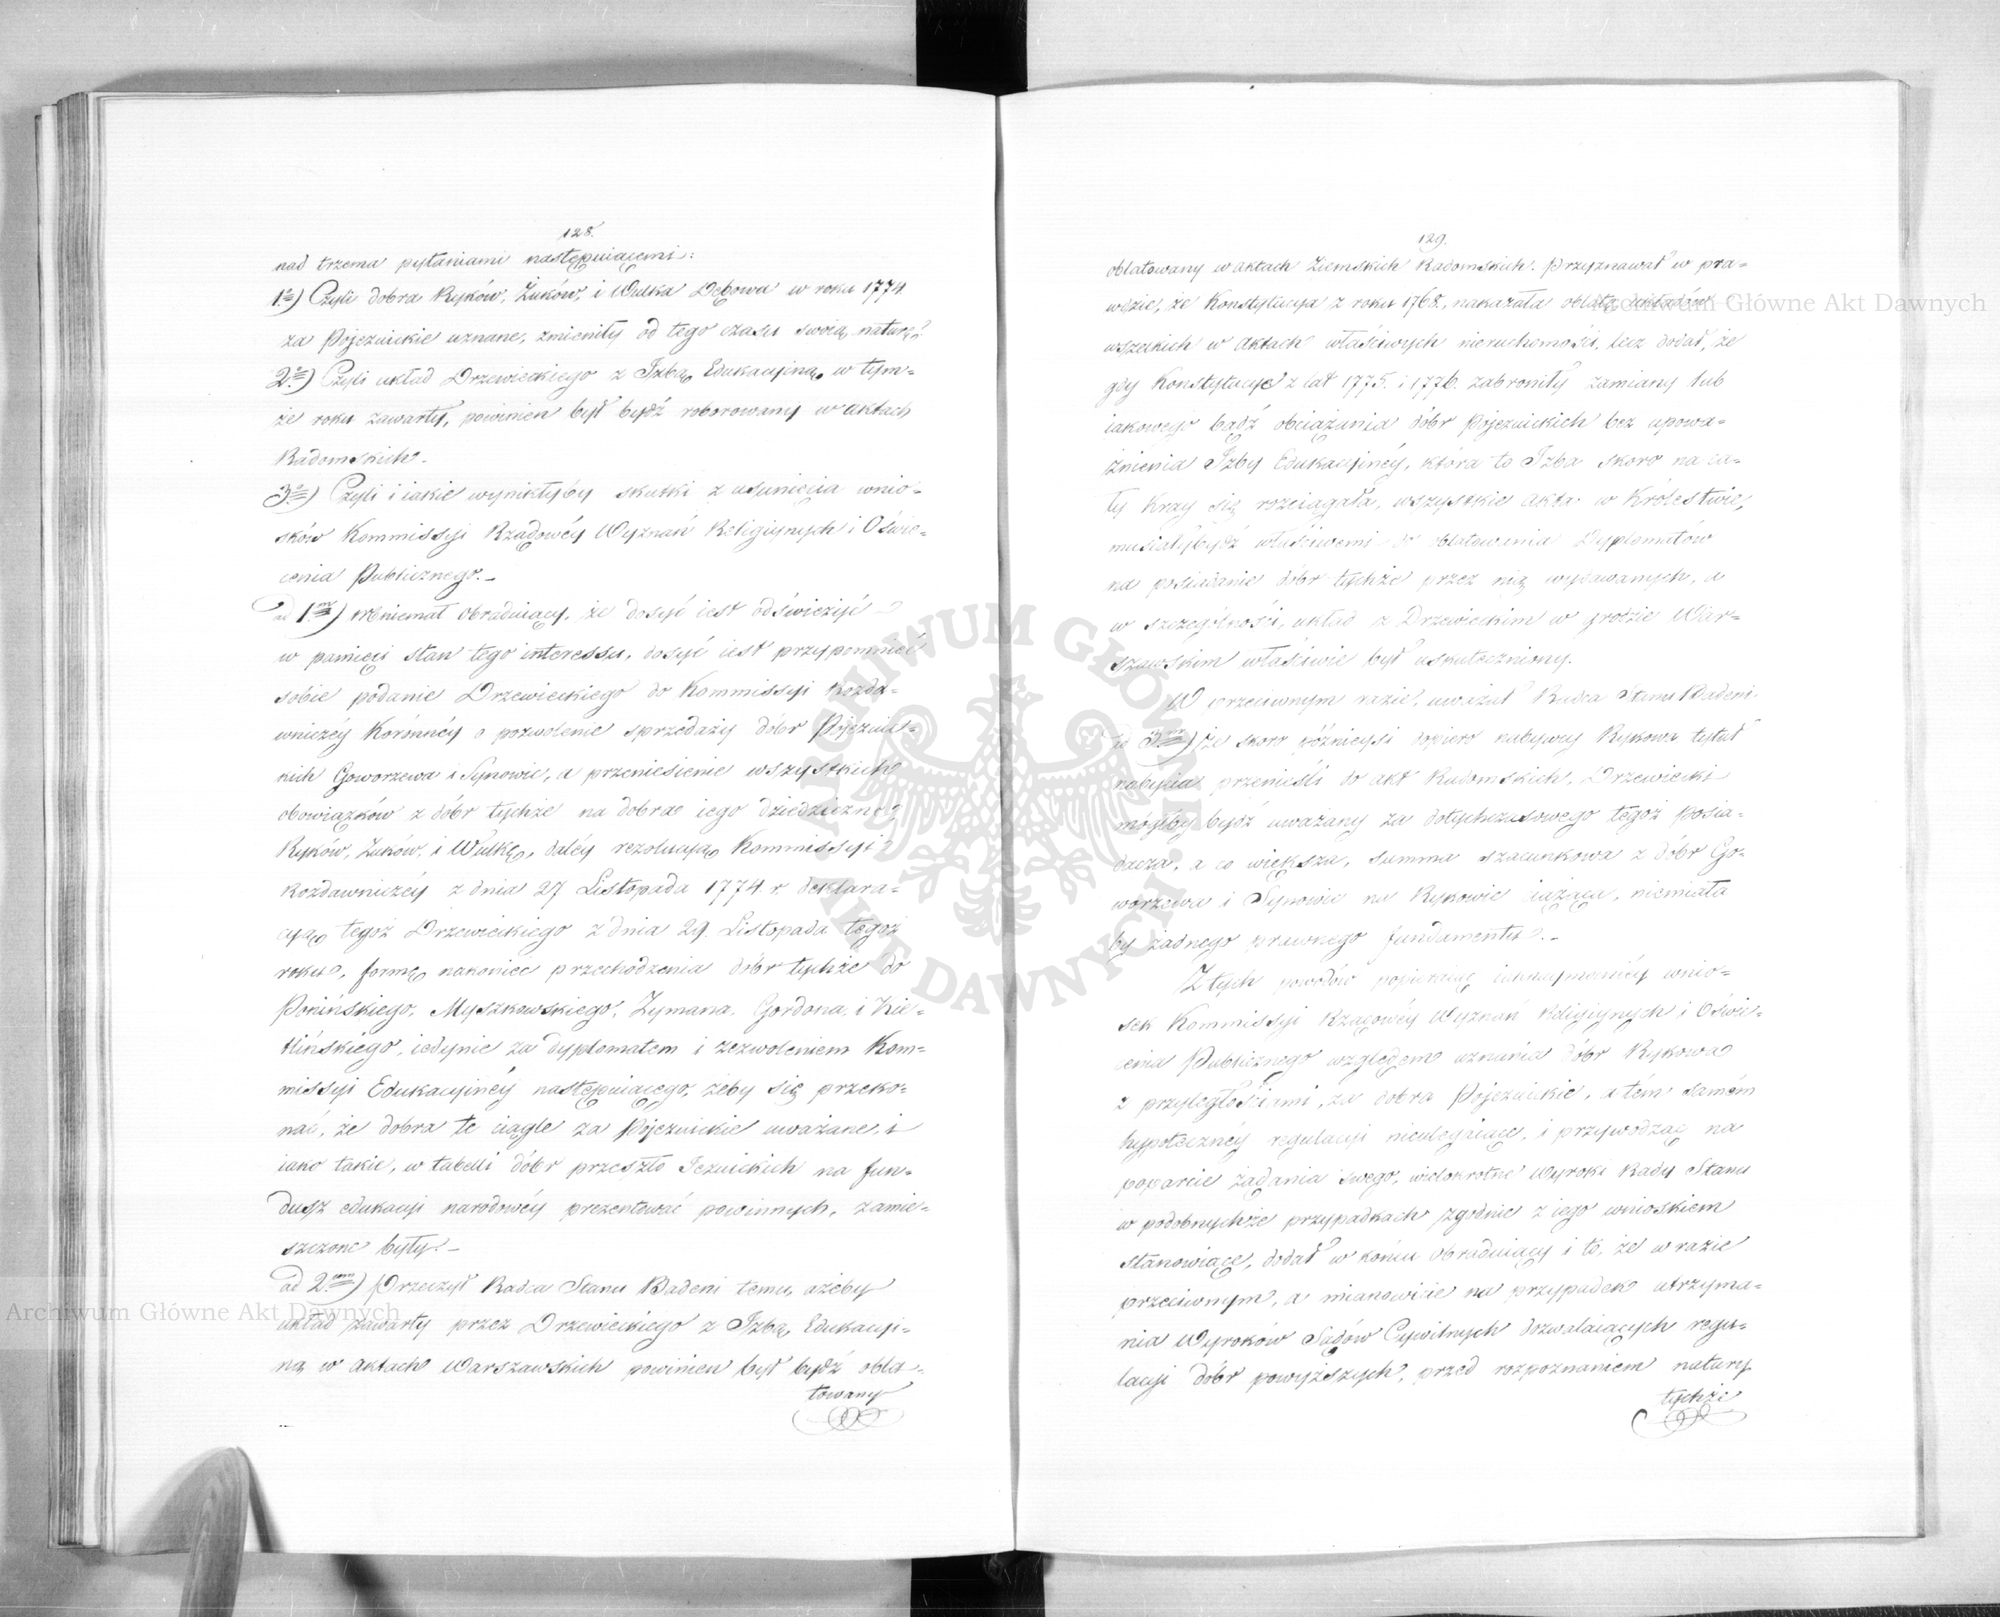 128.
nad trzema pytaniami następuiącemi:
1º) Czyli dobra Ryków, Żuków, i Wulka Dębowa w roku 1774
za Pojezuickie uznane, zmieniły od tego czasu swoią naturę?
2º) Czyli układ Drzewieckiego z Izbą Edukacyiną, w tym=
że roku zawarty, powinien był bydź roborowany w aktach
Radomskich.
3º) Czyli i iakie wyniknęłyby skutki z usunięcia wnio=
sków Kommissyi Rządowéy Wyznań Religiynych i Oświe=
cenia Publicznego. _
ad 1m) Mniemał Obraduiący, że dosyć iest odświeżyć
w pamięci stan tego interessu, dosyć iest przypomnieć
sobie podanie Drzewieckiego do Kommissyi Rozda=
wniczéy Koronnéy o pozwolenie sprzedaży dóbr Pojezuic=
kich Goworzewa i Synowic, a przeniesienie wszystkich
obowiązków z dóbr tychże na dobra iego dziedziczne
Ryków, Żuków, i Wulkę, daléy rezolucyą Kommissyi
Rozdawniczéy z dnia 27 Listopada 1774 r. deklara=
cyą tegoż Drzewieckiego z dnia 29. Listopada tegoż
roku, formę nakoniec przechodzenia dóbr tychże do
Ponińskiego, Myszkowskiego, Zymana, Gordona, i Kie=
llińskiego, iedynie za dyplomatem i zezwoleniem Kom=
missyi Edukacyinéy następuiącego, żeby się przeko=
nać, że dobra te ciągle za Pojezuickie uważane, i
iako takie, w tabelli dóbr przeszło Jezuickich na fun=
dusz edukacyi narodowéy prezentować powinnych, zamie=
szczone były. _
ad 2m) Przeczył Radca Stanu Badeni temu, ażeby
układ zawarty przez Drzewieckiego z Izbą Edukacyi=
ną w aktach Warszawskich powinien był bydź obla=
towany
129.
oblatowany w aktach Ziemskich Radomskich. Przyznawał w pra=
wdzie, że Konstytucya z roku 1768, nakazała oblatę układów
wszelkich w Aktach właściwych nieruchomości, lecz dodał, że
gdy Konstytucye z lat 1775. i 1776. zabroniły zamiany lub
iakowego bądź obciążania dóbr Pojezuickich bez upowa=
żnienia Izby Edukacyinéy, która to Izba skoro na ca=
ły Kray się rozciągała, wszystkie akta w Królestwie,
musiały bydź właściwemi do oblatowania Dyplomatów
na posiadanie dóbr tychże przez nią wydawanych, a
w szczególności, układ z Drzewieckim w grodzie War=
szawskim właściwie był uskuteczniony.
W przeciwnym razie, uważał Radca Stanu Badeni
ad 3m) że skoro późnieysi dopiero nabywcy Rykowa tytuł
nabycia przenieśli do akt Radomskich, Drzewiecki
mógłby bydź uważany za dotychczasowego tegoż posia=
dacza, a co większa, summa szacunkowa z dóbr Go=
worzewa i Synowic na Rykowie ciążąca, niemiała
by żadnego prawnego fundamentu. _
Z tych powodów popieraiąc iaknaymocniéy wnio=
sek Kommissyi Rządowéy Wyznań Religiynych i Oświe=
cenia Publicznego względem uznania dóbr Rykowa
z przyległościami, za dobra Pojezuickie, a tém samém
hypotecznéy regulacyi nieulegaiące, i przywodząc na
poparcie żądania swego, wielokrotne Wyroki Rady Stanu
w podobnychże przypadkach zgodnie z iego wnioskiem
stanowiące, dodał w końcu Obraduiący i to, że w razie
przeciwnym, a mianowicie na przypadek utrzyma=
nia Wyroków Sądów Cywilnych dozwalaiących regu=
lacyi dóbr powyższych, przed rozpoznaniem natury
tychże
Archiwum Główne Akt Dawnych
Archiwum Główne Akt Dawnych
ARCHIWUM GŁÓWNE AKT DAWNYCH